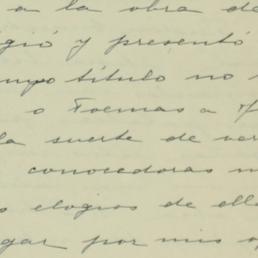 a la obra de
gió y presentó
mpo título no
o Poemas a
la suerte de ver
conocedoras
elogios de ell
gar por mis